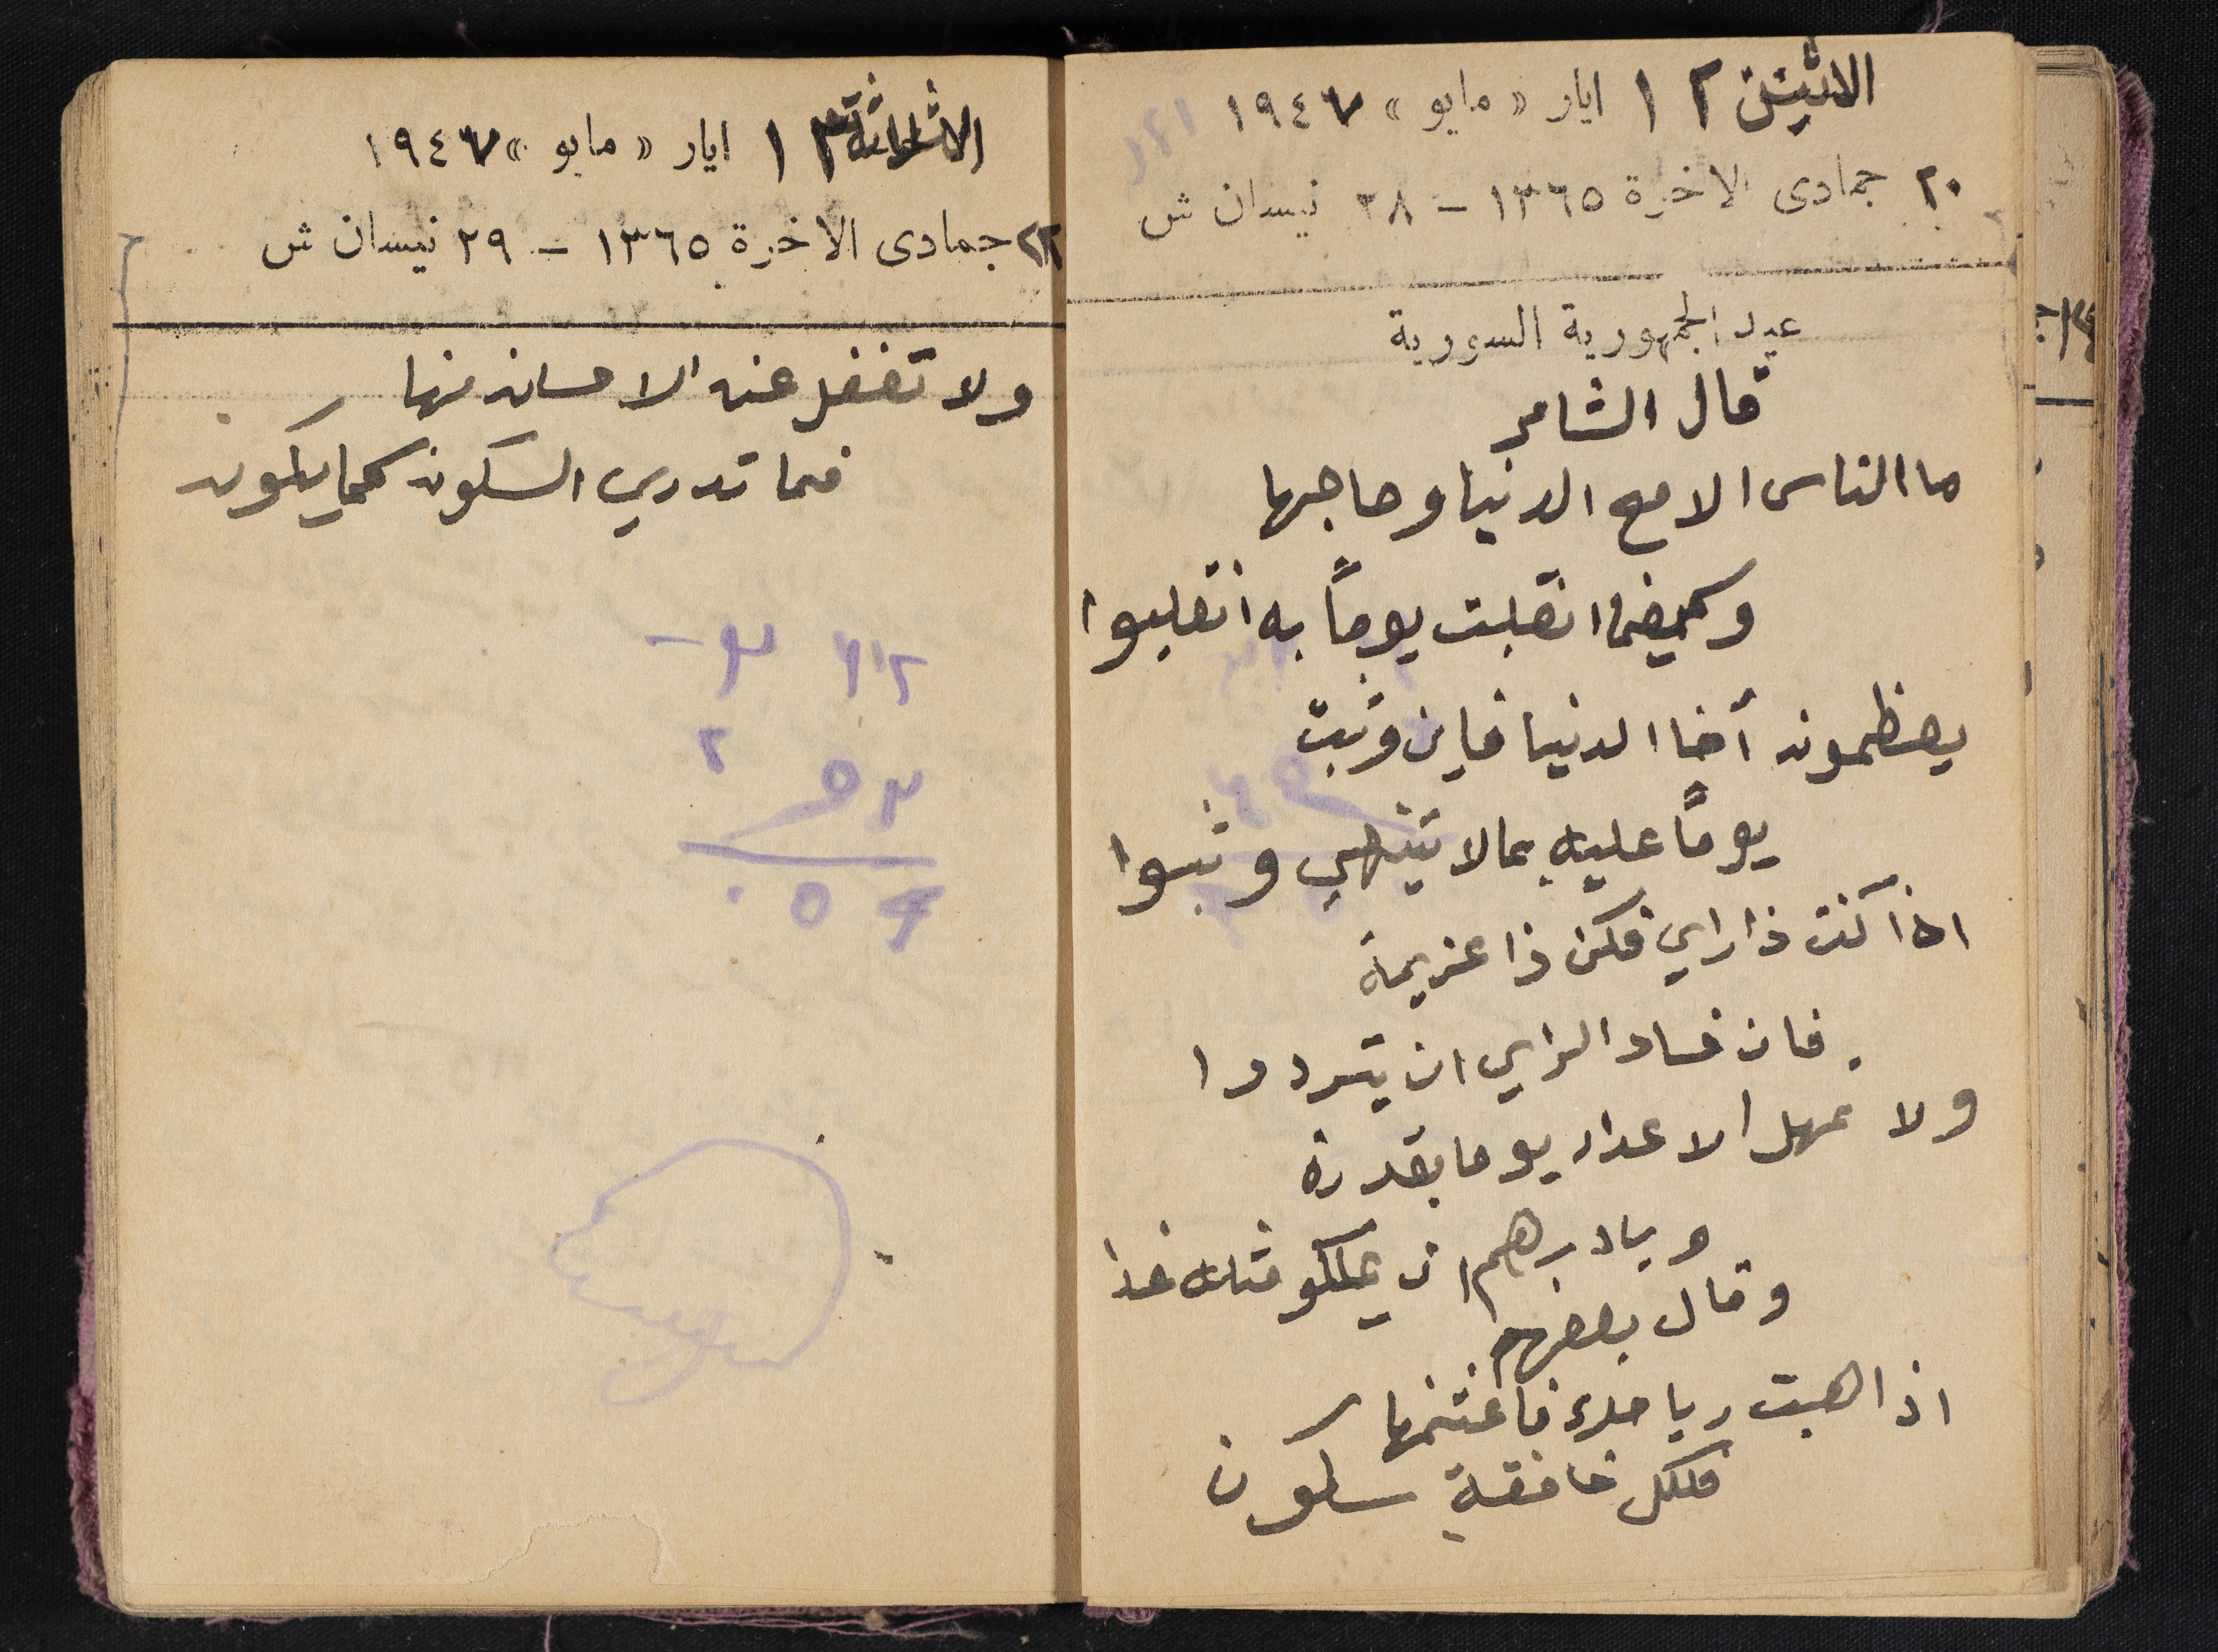 الاثنين ١٢ ايار « مايو » ١٩٤٧
٢٠ جمادى الاخرة ١٣٦٥ – ٢٨ نيسان ش
عيد الجمهورية السورية
قال الشاعر
ما الناس الا مع الدنيا وصاحبها
وكيفما انقلبت يوماً به انقلبوا
يعظمون أخا الدنيا فاين وثبت
يوماً عليه بما لا تشتهي وثبوا
اذا كنت ذا راي فكن ذا عزيمة
فان فساد الراي ان يترددوا
ولا تمهل الاعداء يوما بقدرة
وبادرهم ان يملكو مثلها غدا
وقال بعضهم
اذا هبت رياحك فاغتنمها
فلكل خافقة سكون
الثلاثة ١٣ ايار « مايو » ١٩٤٧
٢٢ جمادى الاخرة ١٣٦٥ – ٢٩ نيسان ش
ولا تغفل عن الاحسان منها
فما تدري السكون كما يكون